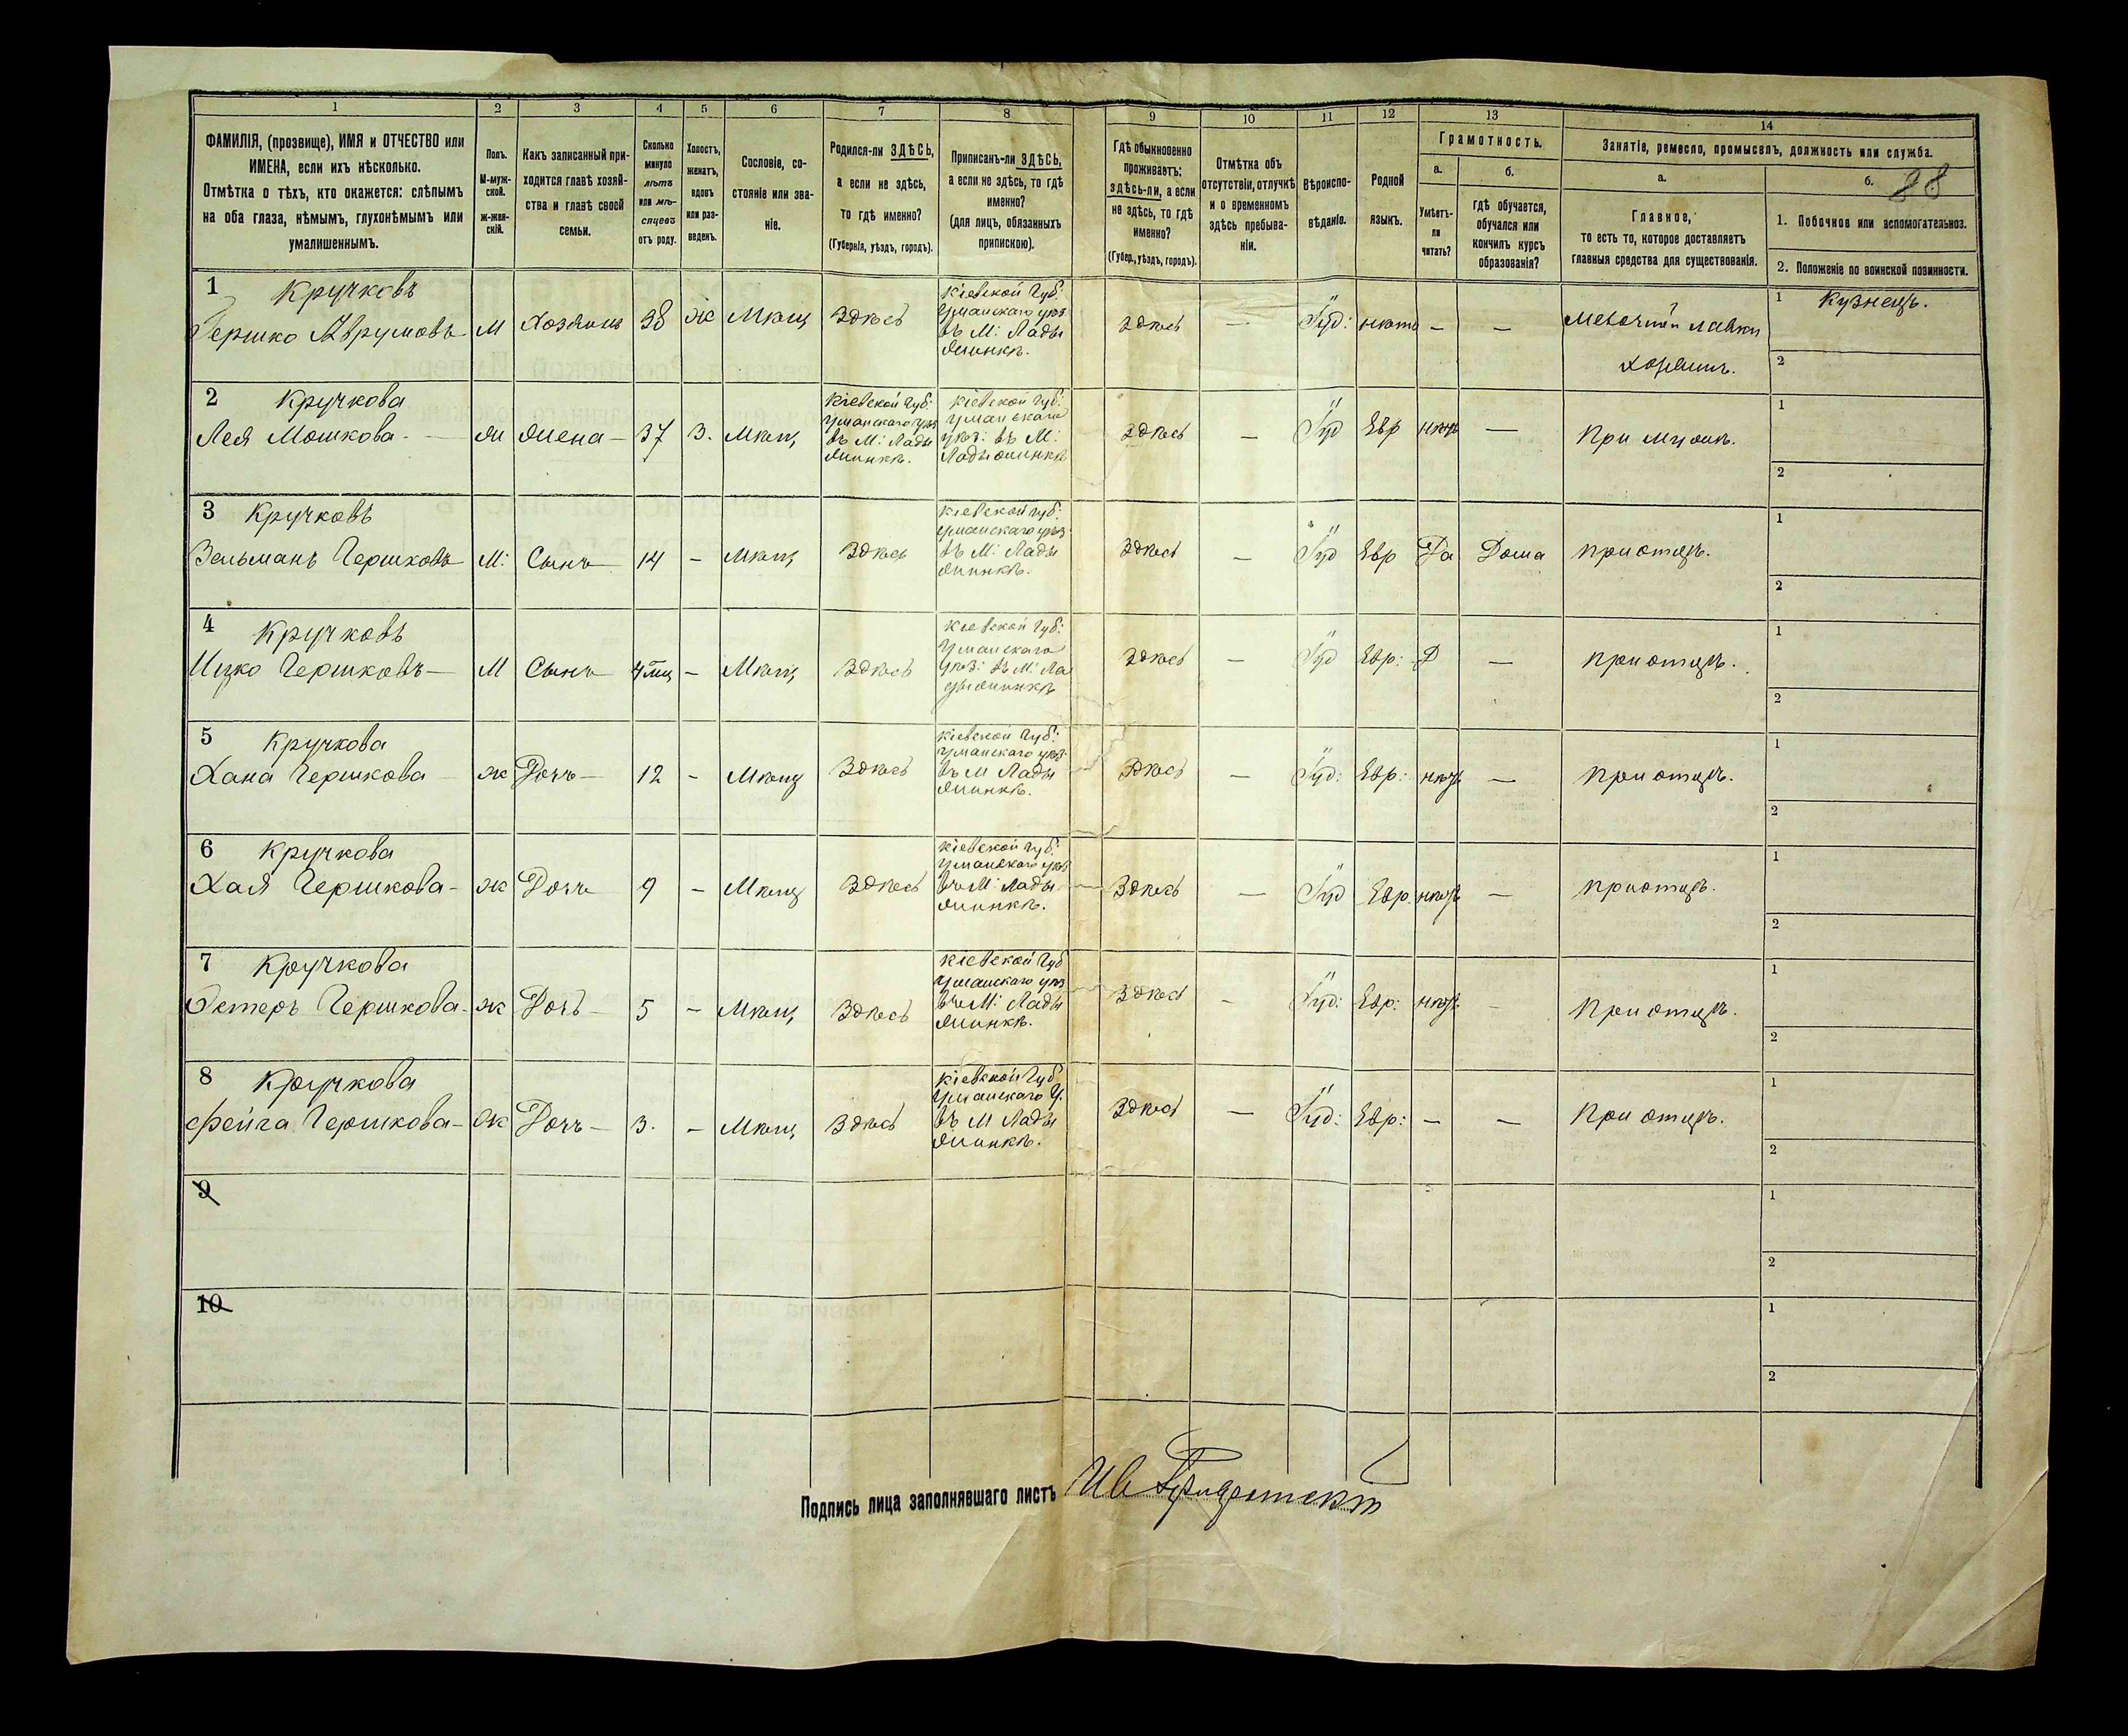 1 2 3 4 5 6 7 8 9 10 11 12 13 14
ФАМИЛІЯ, (прозвище), ИМЯ и ОТЧЕСТВО или
ИМЕНА, если ихъ нѣсколько.
Отмѣтка о тѣхъ, кто окажется: слѣпымъ
на оба глаза, нѣмымъ, глухонѣмымъ или
умалишеннымъ.
Полъ.
М-муж-
ской.
ж-жен-
скій.
Какъ записанный при-
ходится главѣ хозяй-
ства и главѣ своей
семьи.
Сколько
минуло
лѣтъ
или мѣ-
сяцевъ
отъ роду.
Холостъ,
женатъ,
вдовъ
или раз-
веденъ.
Сословіе, со-
стояніе или зва-
ніе.
Родился-ли ЗДѢСЬ,
а если не здѣсь,
то гдѣ именно?
(Губернія, уѣздъ, городъ).
Приписанъ-ли ЗДѢСЬ,
а если не здѣсь, то гдѣ
именно?
(для лицъ, обязанныхъ
припискою).
Гдѣ обыкновенно
проживаетъ:
здѣсь-ли, а если
не здѣсь, то гдѣ
именно?
(Губер., уѣздъ, городъ).
Отмѣтка объ
отсутствіи, отлучкѣ
и о временномъ
здѣсь пребыва-
ніи.
Вѣроиспо-
вѣданіе.
Родной
языкъ.
Грамотность.
а.
Умѣетъ-
ли
читать?
б.
гдѣ обучается,
обучался или
кончилъ курсъ
образованія?
Занятіе, ремесло, промыселъ, должность или служба.
а.
Главное,
то есть то, которое доставляетъ
главныя средства для существованія.
б. 88
1. Побочное или вспомогательное.
2. Положеніе по воинской повинности.
1 Кручковъ
Гершко Аврумовъ М Хозяинъ 38 ж Мѣщ Здѣсь
Кіевской Губ:
Уманскаго уѣз
въ М: Лады
жинкѣ.
здѣсь — Іуд: — —
Мелочной лавки
хозяинъ.
1 Кузнецъ.
2
2 Кручкова
Лея Мошкова — жи жена — 37 З. Мѣщ
Кіевской Губ:
Уманскаго уѣз
въ М: Лады
жинкѣ.
Кіевской Губ:
Уманскаго
уѣз: въ М:
Ладыжинкѣ
здѣсь — Іуд Евр нѣтъ — При мужѣ.
1
2
3 Кручковъ
Зельманъ Гершковъ М: Сынъ 14 — Мѣщ Здѣсь
Кіевской Губ:
Уманскаго уѣз
въ М: Лады
жинкѣ.
Здѣсь — Іуд Евр Да Дома при отцѣ.
1
2
4 Кручковъ
Ицко Гершковъ — М Сынъ — Мѣщ Здѣсь
Кіевской Губ:
Уманскаго
уѣз: въ М: Ла
дыжинкѣ
Здѣсь — Іуд Евр: — при отцѣ.
1
2
5 Кручкова
Хана Гершкова ж Дочь — 12 — Мѣщ Здѣсь
Кіевской Губ:
Уманскаго уѣз
въ М Лады
жинкѣ.
Здѣсь — Іуд: Евр: нѣтъ — при отцѣ.
1
2
6 Кручкова
Хая Гершкова — ж Дочь 9 — Мѣщ Здѣсь
Кіевской Губ:
Уманскаго уѣз
въ М: Лады
жинкѣ.
Здѣсь — Іуд Евр. нѣтъ — при отцѣ.
1
2
7 Кручкова
Эстеръ Гершкова — ж Дочь — 5 — Мѣщ Здѣсь
Кіевской Губ
Уманскаго уѣз
въ М: Лады
жинкѣ.
Здѣсь — Іуд: Евр: нѣтъ — При отцѣ.
1
2
8 Кручкова
Фейга Гершкова — ж Дочь — 3. — Мѣщ Здѣсь
Кіевской Губ
Уманскаго У.
въ М Лады
жинкѣ.
Здѣсь — Іуд: Евр: — — При отцѣ.
1
2
9
1
2
10
1
2
Подпись лица заполнявшаго листъ